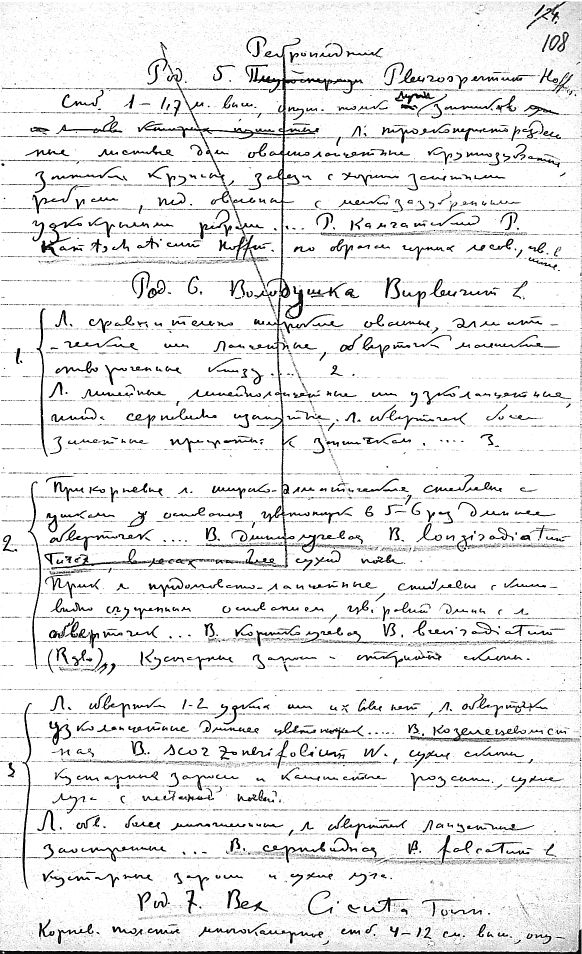 124.
108
Реброплодник
Род. 5. Pleurospermum Hoffm.
Стеб. 1–1,7 м. выс., опуш. только зонтиков
, л. тройсторазде
ные, листовые доли овальноланцетные крупнозубчатые,
зонтики крупные, завязи с хорошо заметными
ребрами, плод. овальные с мелкозазубренными
узкокрылыми ребрами.... Р. Камчатский P.
Kamtschaticum Hoffm. по оврагам горных лесов,
Род. 6. Володушка Bupleurum L.
1. Л. сравнительно широкие овальные, эллипти-
-ческие или ланцетные, обверточки маленькие
отвороченные книзу .... 2.
Л. линейные, линейноланцетные или узколанцетные,
иногда серповидно изогнутые, л. обверточек более
заметные прижатые к зонтичкам. .... 3.
2. Прикорневые л. широко-эллиптические, стеблевые с
ушками у основания, цветоножки в 5–6 раз длиннее
обверточек .... В. длиннолучевая B. longiradiatum
Turcz., в лесах на более сухой почве.
Прик. л. продолговато-ланцетные, стеблевые с клино-
видно суженным основанием, цв. равной длины с л.
обверточек ... В. коротколучевая B. breviradiatum
(Rgl.),, Кустарные заросли – открытые склоны.
3. Л. обвертки 1-2 узких или их вовсе нет, л. обверточки
узколанцетные длиннее цветоножек ..... В. козелецелист
ная B. scorzonerifolium W., сухие склоны,
кустарные заросли и каменистые россыпи, сухие
луга с песчаной почвой.
Л. обв. более многочисленные, л. обверточек ланцетные
заостренные ... В. серповидная B. falcatum L
кустарные заросли и сухие луга.
Род 7. Вех Cicuta Tourn.
Корнев. толстое многокамерное, стеб. 4–12 см. выс.,